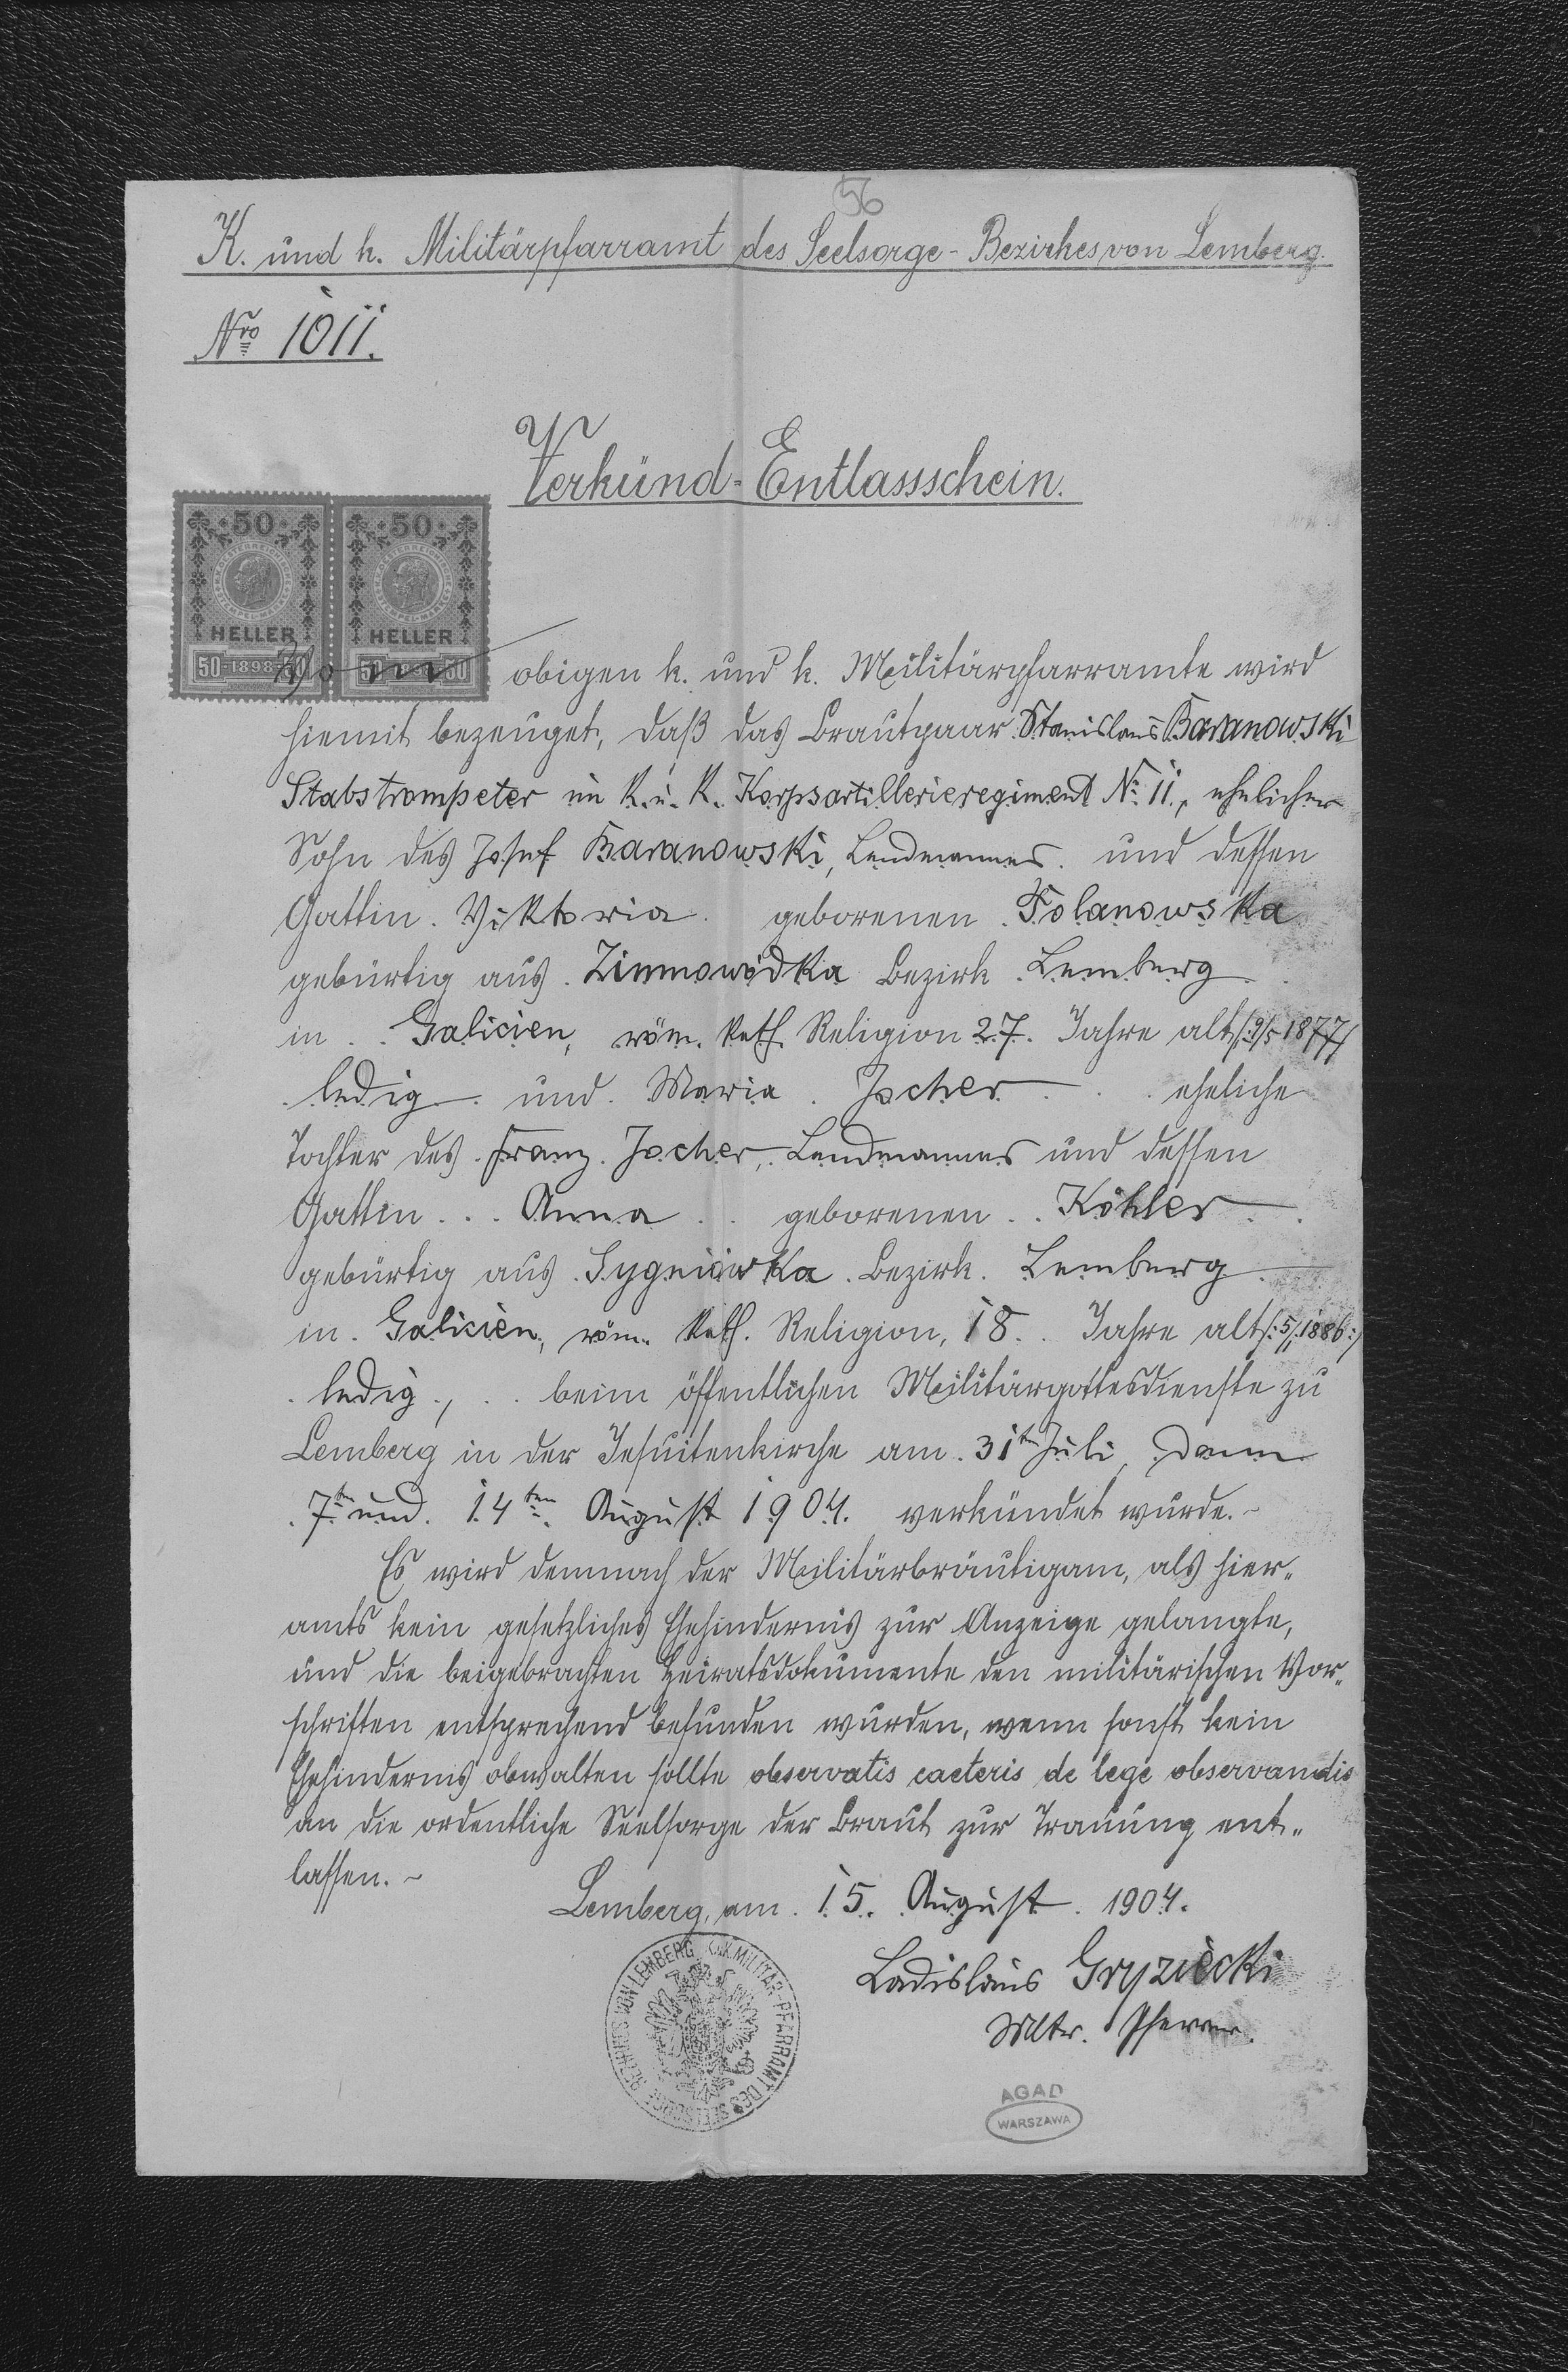 56
K. und k. Militärpfarramt des Seelsorge-Bezirkes von Lemberg.
Nro 1011.
Verkünd-Entlassschein.
50 50
HELLER HELLER
50 1898 50 50 1898 50
Vom obigen k. und k. Militärpfarramte wird
hiemit bezeuget, daß das Brautpaar Stanislaus Baranowski
Stabstrompeter im k. u. k. Korpsartillerieregiment No 11., ehelicher
Sohn des Josef Baranowski, Landmannes und dessen
Gattin Viktoria geborenen Folanowska
gebürtig aus Zimnowódka Bezirk Lemberg
in Galicien, röm. kath. Religion 27. Jahre alt /: 9/5 1877 :/
ledig und Maria Jocher eheliche
Tochter des Franz Jocher, Landmannes und dessen
Gattin Anna geborenen Köhler
gebürtig aus Sygniówka Bezirk Lemberg
in Galicien, röm. kath. Religion, 18 Jahre alt /: 5/1 1886 :/
ledig, beim öffentlichen Militärgottesdienste zu
Lemberg in der Jesuitenkirche am 31ten Juli, dann
7ten und 14ten August 1904. verkündet wurde.
Es wird demnach der Militärbräutigam, als hier-
amts kein gesetzliches Ehehindernis zur Anzeige gelangte,
und die beigebrachten Heiratsdokumente den militärischen Vor-
schriften entsprechend befunden wurden, wenn sonst kein
Ehehindernis obwalten sollte observatis caeteris de lege observandis
an die ordentliche Seelsorge der Braut zur Trauung ent-
lassen.
Lemberg, am 15. August 1904.
Ladislaus Gryziecki
Mltr. Pfarrer.
K.u.K. MILITÄR-PFARRAMT DES SEELSORGE BEZIRKES VON LEMBERG
AGAD
WARSZAWA